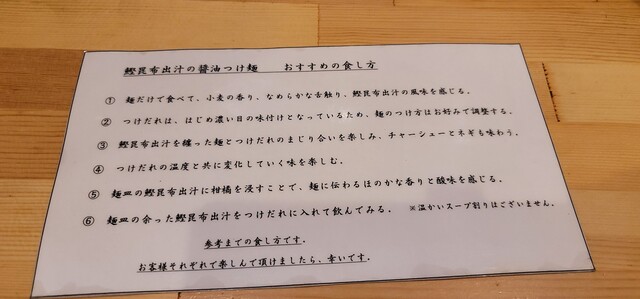 鰹昆布出汁の醤油つけ麺　　おすすめの食し方
① 麺だけで食べて、小麦の香り、なめらかな舌触り、鰹昆布出汁の風味を感じる。
② つけだれは、はじめ濃い目の味付けとなっているため、麺のつけ方はお好みで調整する。
③ 鰹昆布出汁を纏った麺とつけだれのまじり合いを楽しみ、チャーシューとネギも味わう。
④ つけだれの温度と共に変化していく味を楽しむ。
⑤ 麺皿の鰹昆布出汁に柑橘を浸すことで、麺に伝わるほのかな香りと酸味を感じる。
⑥ 麺皿の余った鰹昆布出汁をつけだれに入れて飲んでみる。　※温かいスープ割りはございません。
参考までの食し方です。
お客様それぞれで楽しんで頂けましたら、幸いです。